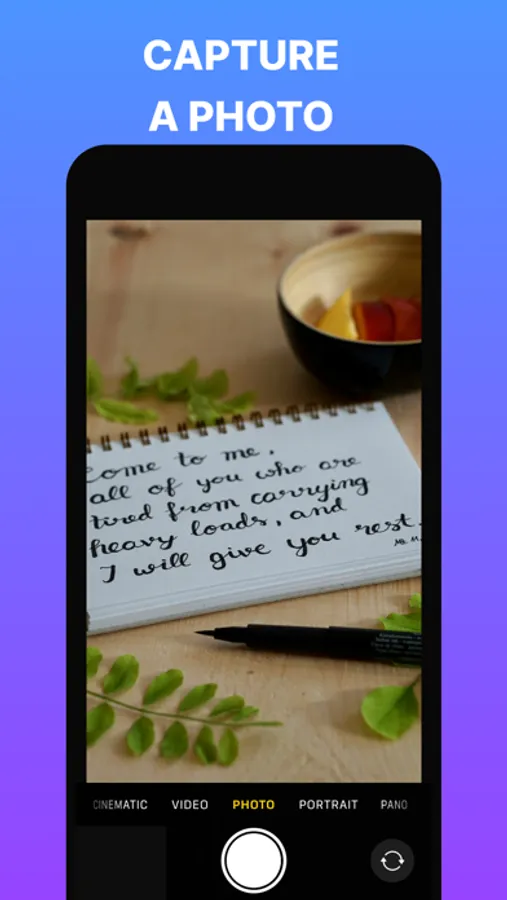 CAPTURE
A PHOTO
Come to me,
all of you who are
tired from carrying
heavy loads, and
I will give you rest.
CINEMATIC VIDEO PHOTO PORTRAIT PANO